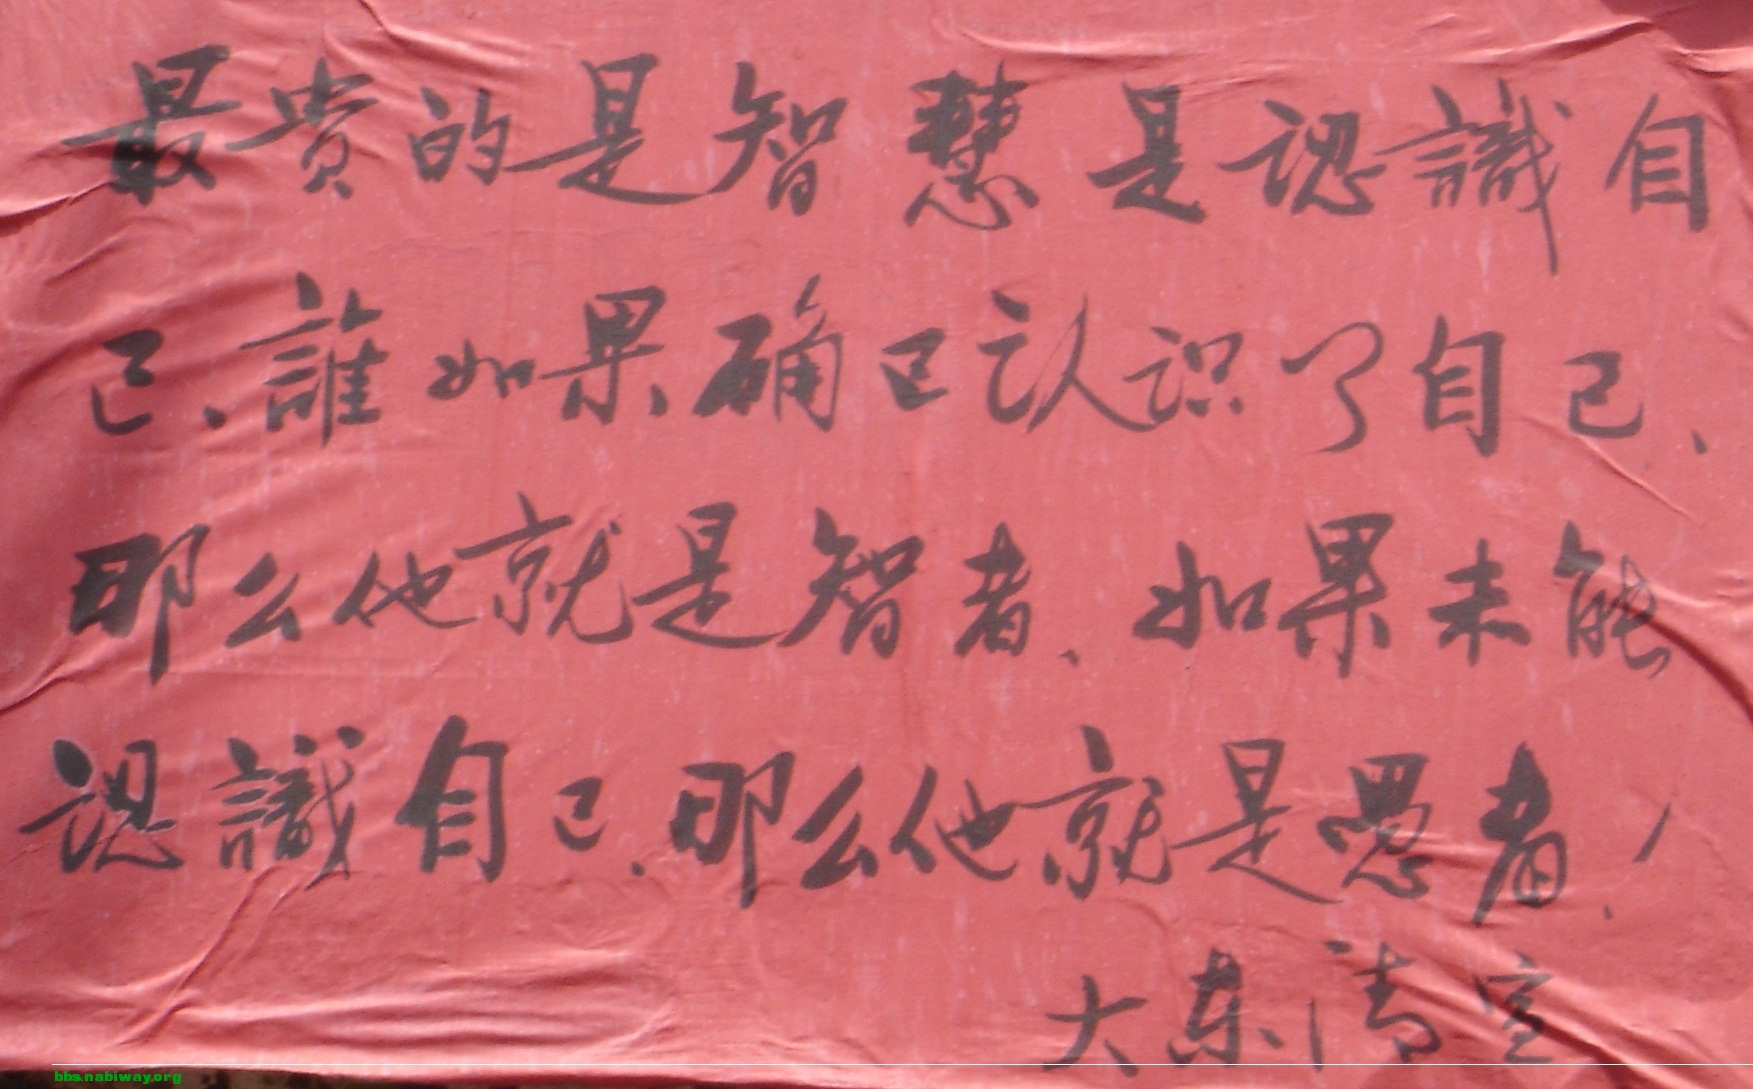 最贵的是智慧是認識自
己、誰如果确已认识了自己、
那么他就是智者、如果未能
認識自己、那么他就是愚者!
大东清空
bbs.nabiway.org